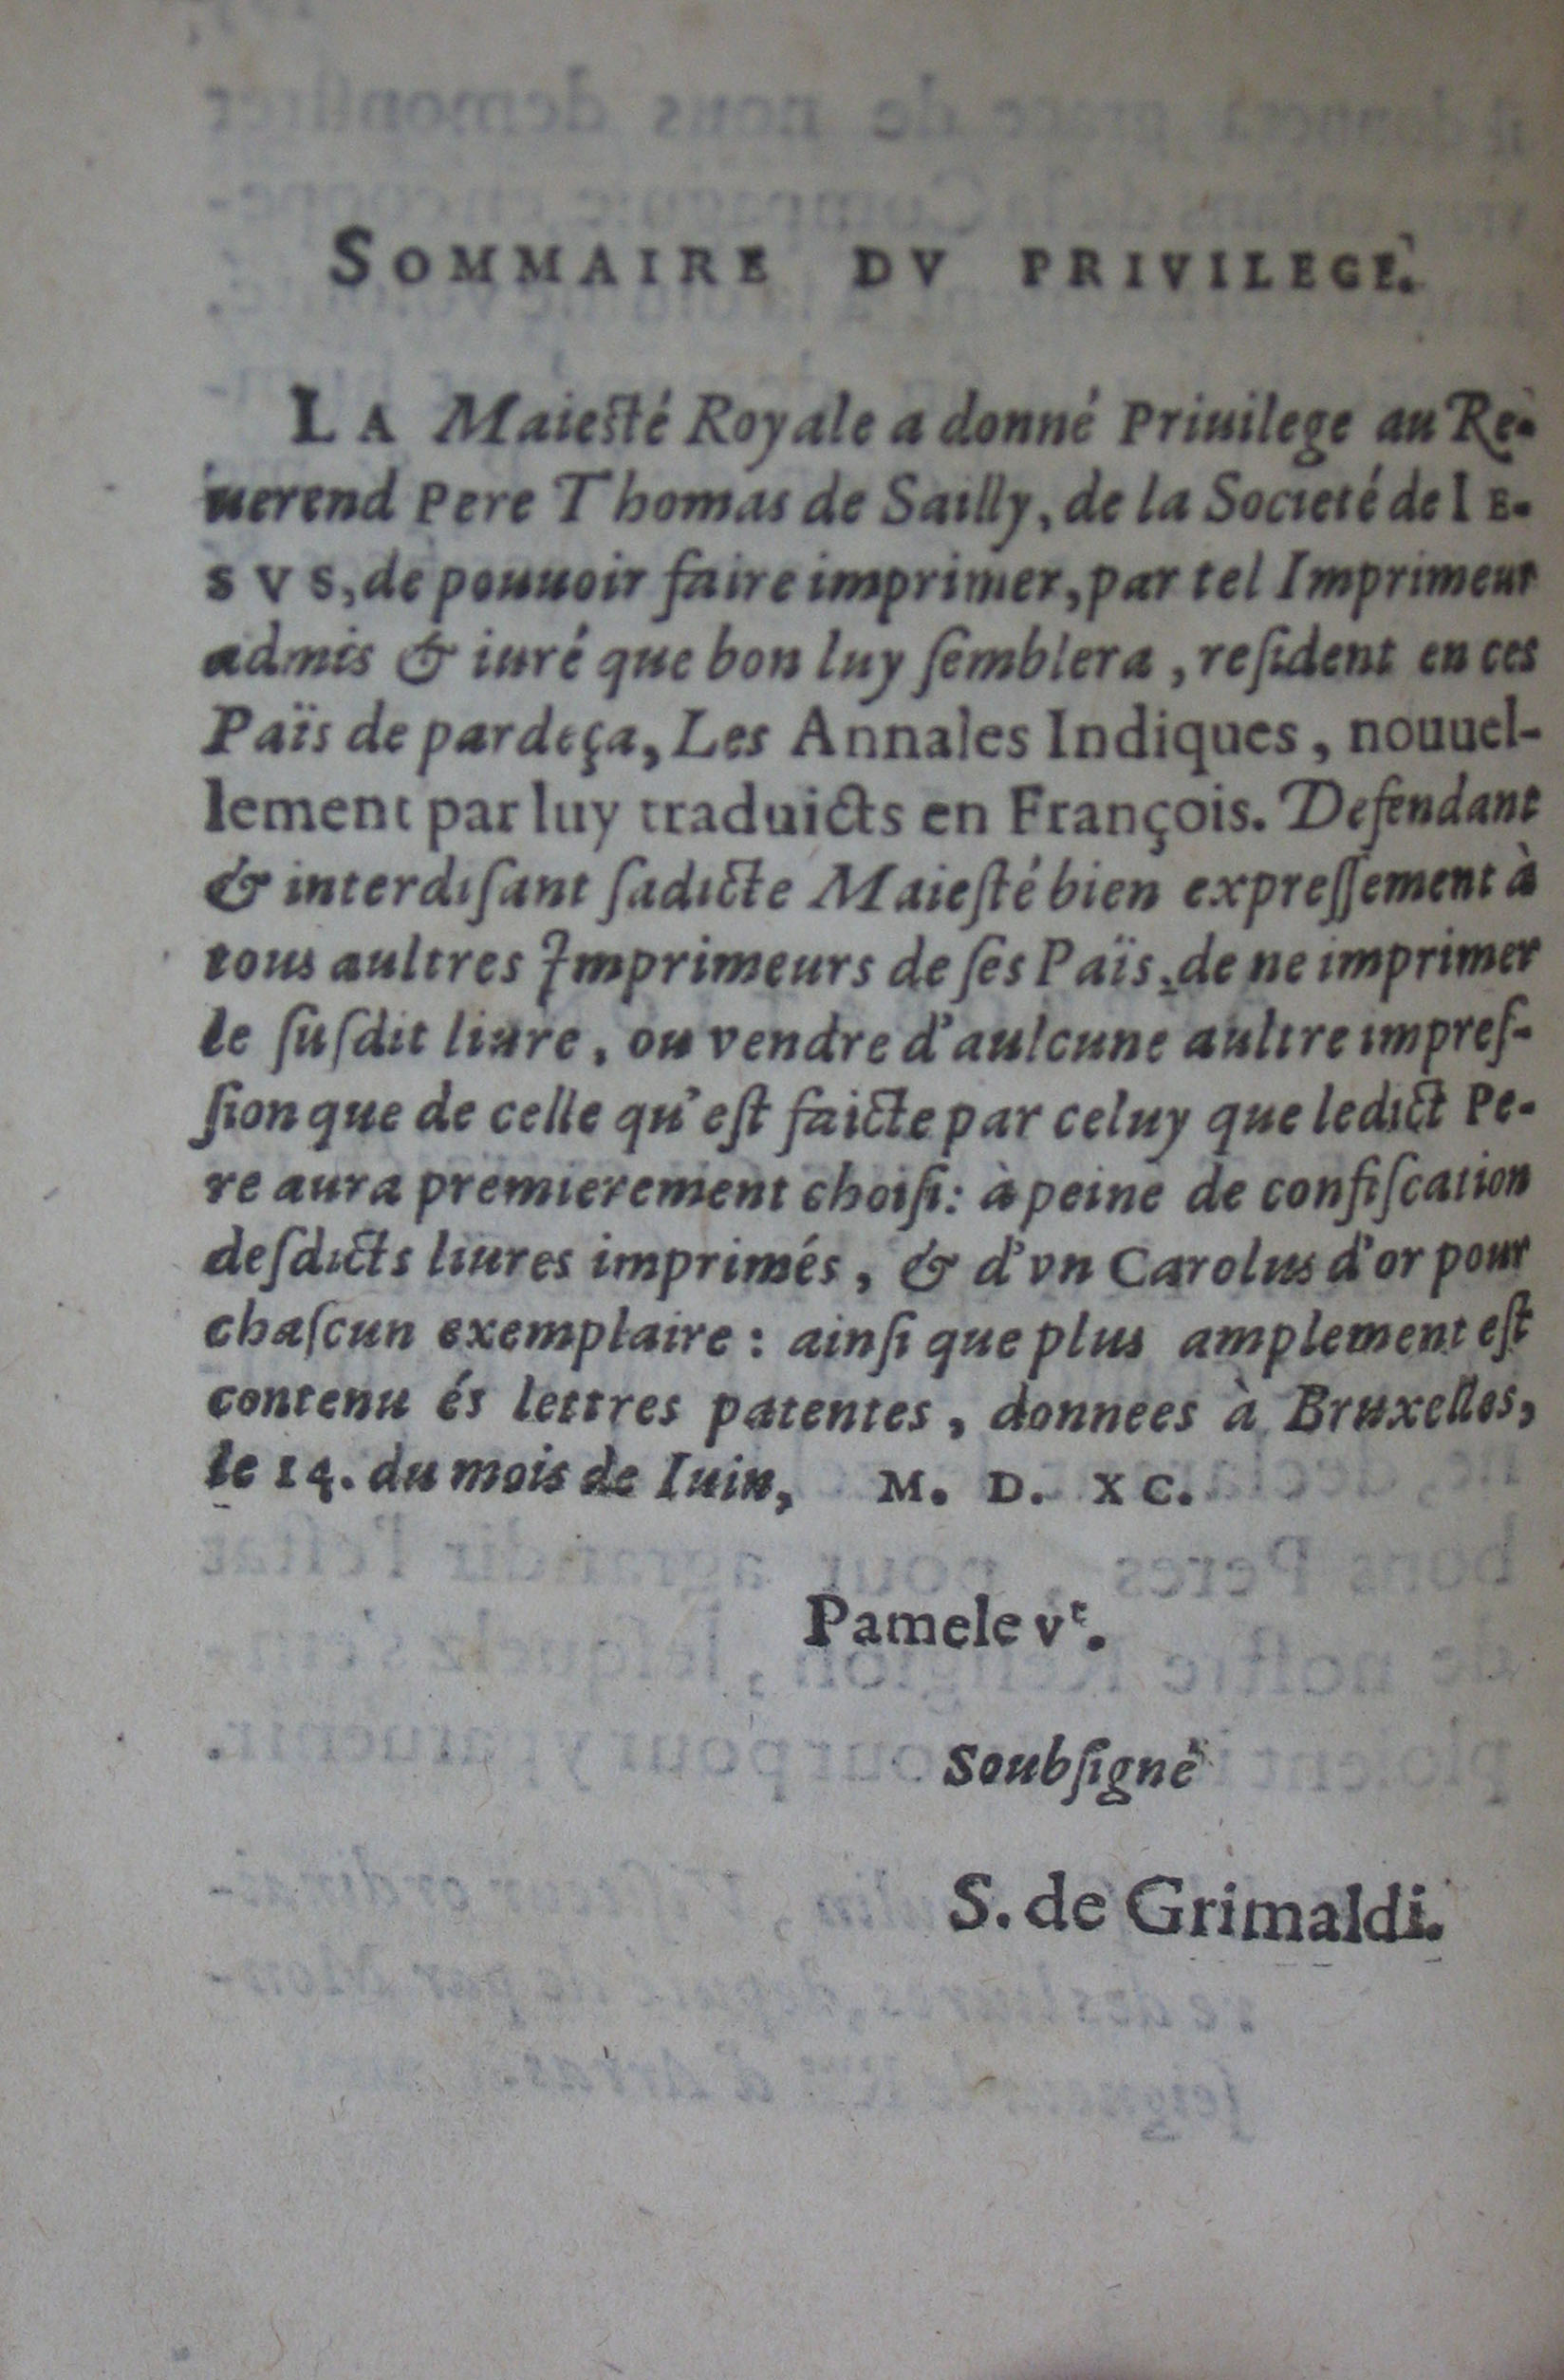 SOMMAIRE DV PRIVILEGE.
LA Maiesté Royale a donné Priuilege au Re-
uerend Pere Thomas de Sailly, de la Societé de IE-
SVS, de pouuoir faire imprimer, par tel Imprimeur
admis & iuré que bon luy ſemblera, reſident en ces
Païs de pardeça, Les Annales Indiques, nouuel-
lement par luy traduicts en François. Defendant
& interdiſant ſadicte Maieſté bien expreſſement à
tous aultres Imprimeurs de ſes Païs, de ne imprimer
le ſuſdit liure, ou vendre d'aulcune aultre impreſ-
ſion que de celle qu'eſt faicte par celuy que ledict Pe-
re aura premierement choiſi: à peine de confiſcation
deſdicts liures imprimés, & d'vn Carolus d'or pour
chaſcun exemplaire: ainſi que plus amplement eſt
contenu és lettres patentes, donnees à Bruxelles,
le 14. du mois de Iuin, M. D. XC.
Pamele vt.
Soubſigné
S. de Grimaldi.